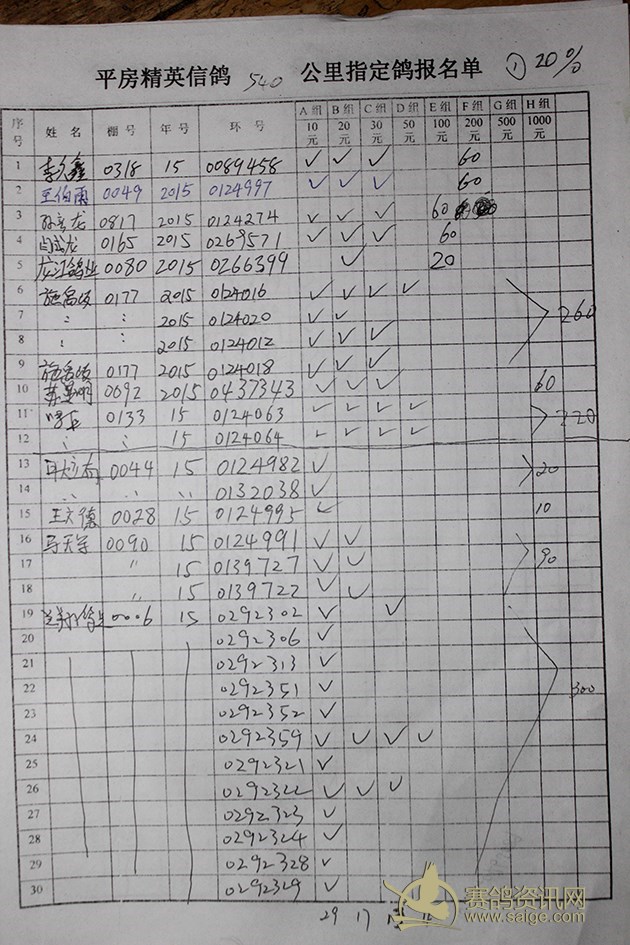 平房精英信鸽 540 公里指定鸽报名单 ① 20%
序号 姓名 棚号 年号 环号 A组10元 B组20元 C组30元 D组50元 E组100元 F组200元 G组500元 H组1000元
1 李久鑫 0318 15 0089458 ✓ ✓ ✓ 60
2 王伯雨 0049 2015 0124997 ✓ ✓ ✓ 60
3 0817 2015 0124274 ✓ ✓ ✓ 60
4 0165 2015 0269571 ✓ ✓ ✓ 60
5 龙江鸽业 0080 2015 0266399 ✓ 20
6 0177 2015 0124016 ✓ ✓ ✓ ✓
7 〃 〃 2015 0124020 ✓ ✓ 260
8 〃 〃 2015 0124012 ✓ ✓ ✓
9 0177 2015 0124018 ✓ ✓ ✓
10 0692 2015 0437343 ✓ ✓ ✓ 60
11 0133 15 0124063 ✓ ✓ ✓ ✓ 220
12 〃 〃 15 0124064 ✓ ✓ ✓ ✓
13 0044 15 0124982 ✓ 20
14 〃 〃 〃 0132038 ✓
15 王文德 0028 15 0124995 ✓ 10
16 马天军 0090 15 0124991 ✓ ✓
17 〃 15 0139727 ✓ ✓ 90
18 〃 15 0139722 ✓ ✓
19 0006 15 0292302 ✓ ✓
20 0292306 ✓
21 0292313 ✓
22 0292351 ✓ 300
23 0292352 ✓
24 0292359 ✓ ✓ ✓ ✓
25 0292321 ✓
26 0292322 ✓ ✓ ✓
27 0292323 ✓
28 0292324 ✓
29 0292328 ✓
30 0292329 ✓
29 17
赛鸽资讯网
www.saige.com